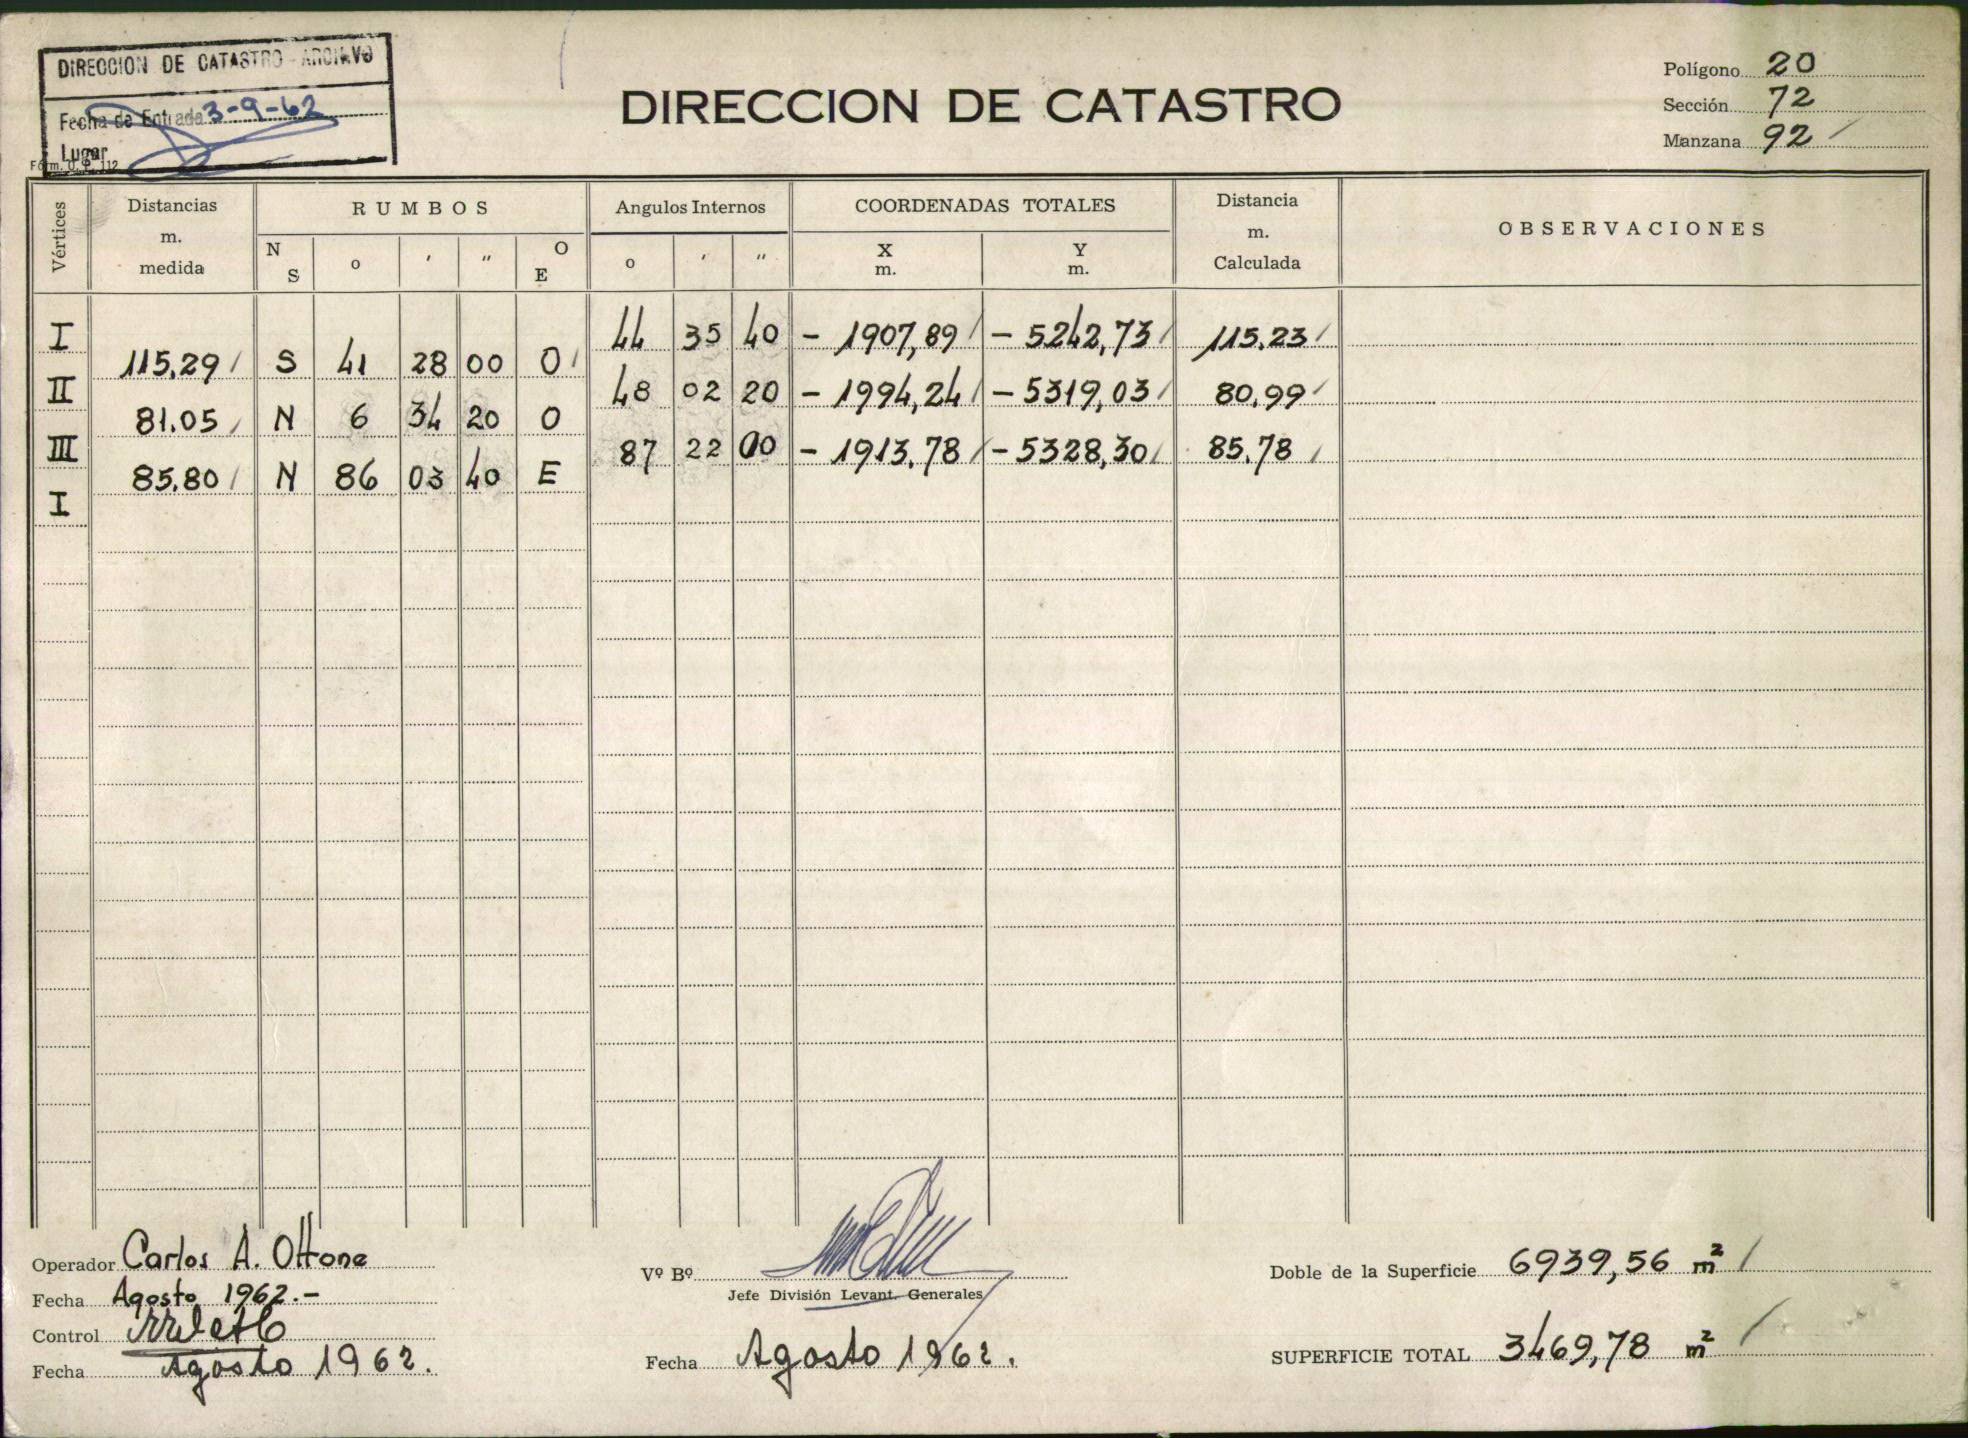 DIRECCION DE CATASTRO - ARCHIVO
Fecha de Entrada 3-9-62
Lugar
Form. O. P. 112
DIRECCION DE CATASTRO
Polígono 20
Sección 72
Manzana 92 /
Vértices Distancias m. medida RUMBOS N S o ' " O E Angulos Internos o ' " COORDENADAS TOTALES X m. Y m. Distancia m. Calculada OBSERVACIONES
I 44 35 40 - 1907,89 / - 5242,73 / 115,23 /
115,29 / S 41 28 00 O /
II 48 02 20 - 1994,24 / - 5319,03 / 80,99 /
81,05 / N 6 34 20 O
III 87 22 00 - 1913,78 / - 5328,30 / 85,78 /
85,80 / N 86 03 40 E
I
Operador Carlos A. Ottone
Fecha Agosto 1962.-
Control
Fecha Agosto 1962.
Vº Bº
Jefe División Levant. Generales
Fecha Agosto 1962.
Doble de la Superficie 6939,56 m² /
SUPERFICIE TOTAL 3469,78 m² /